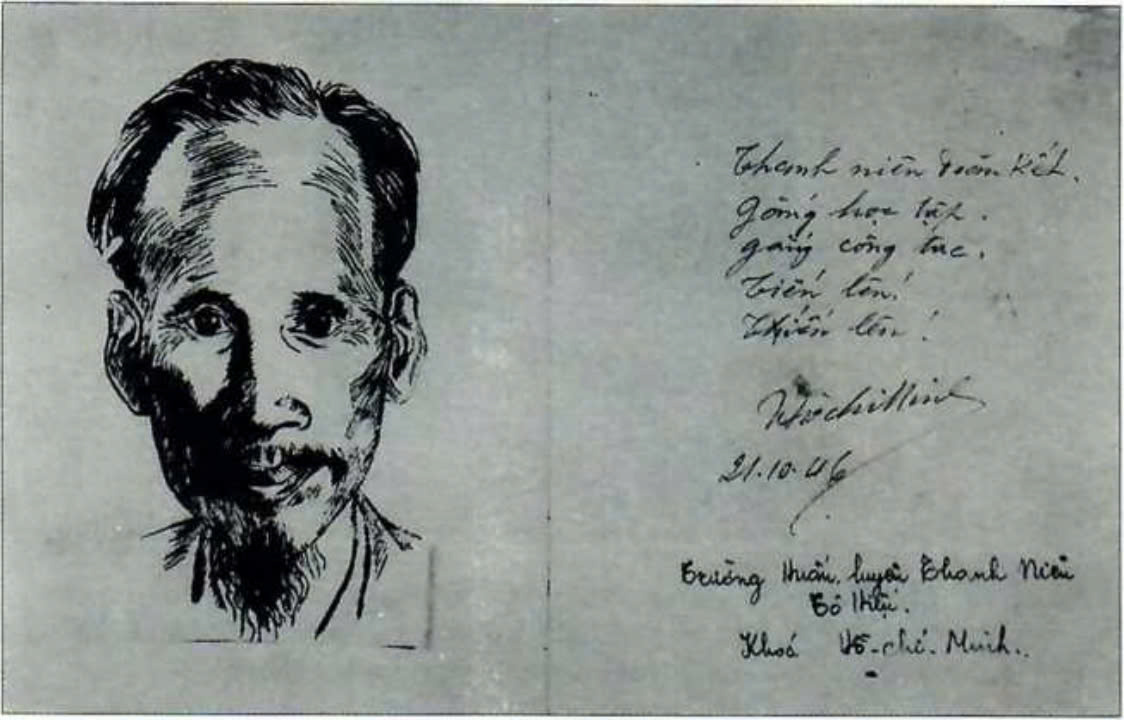 Thanh niên đoàn kết.
Gắng học tập.
gắng công tác.
Tiến lên!
Tiến lên!
HồchíMinh
21.10.46
Trường Huấn luyện Thanh Niên
Tô Hiệu.
Khoá Hồ-chí-Minh.